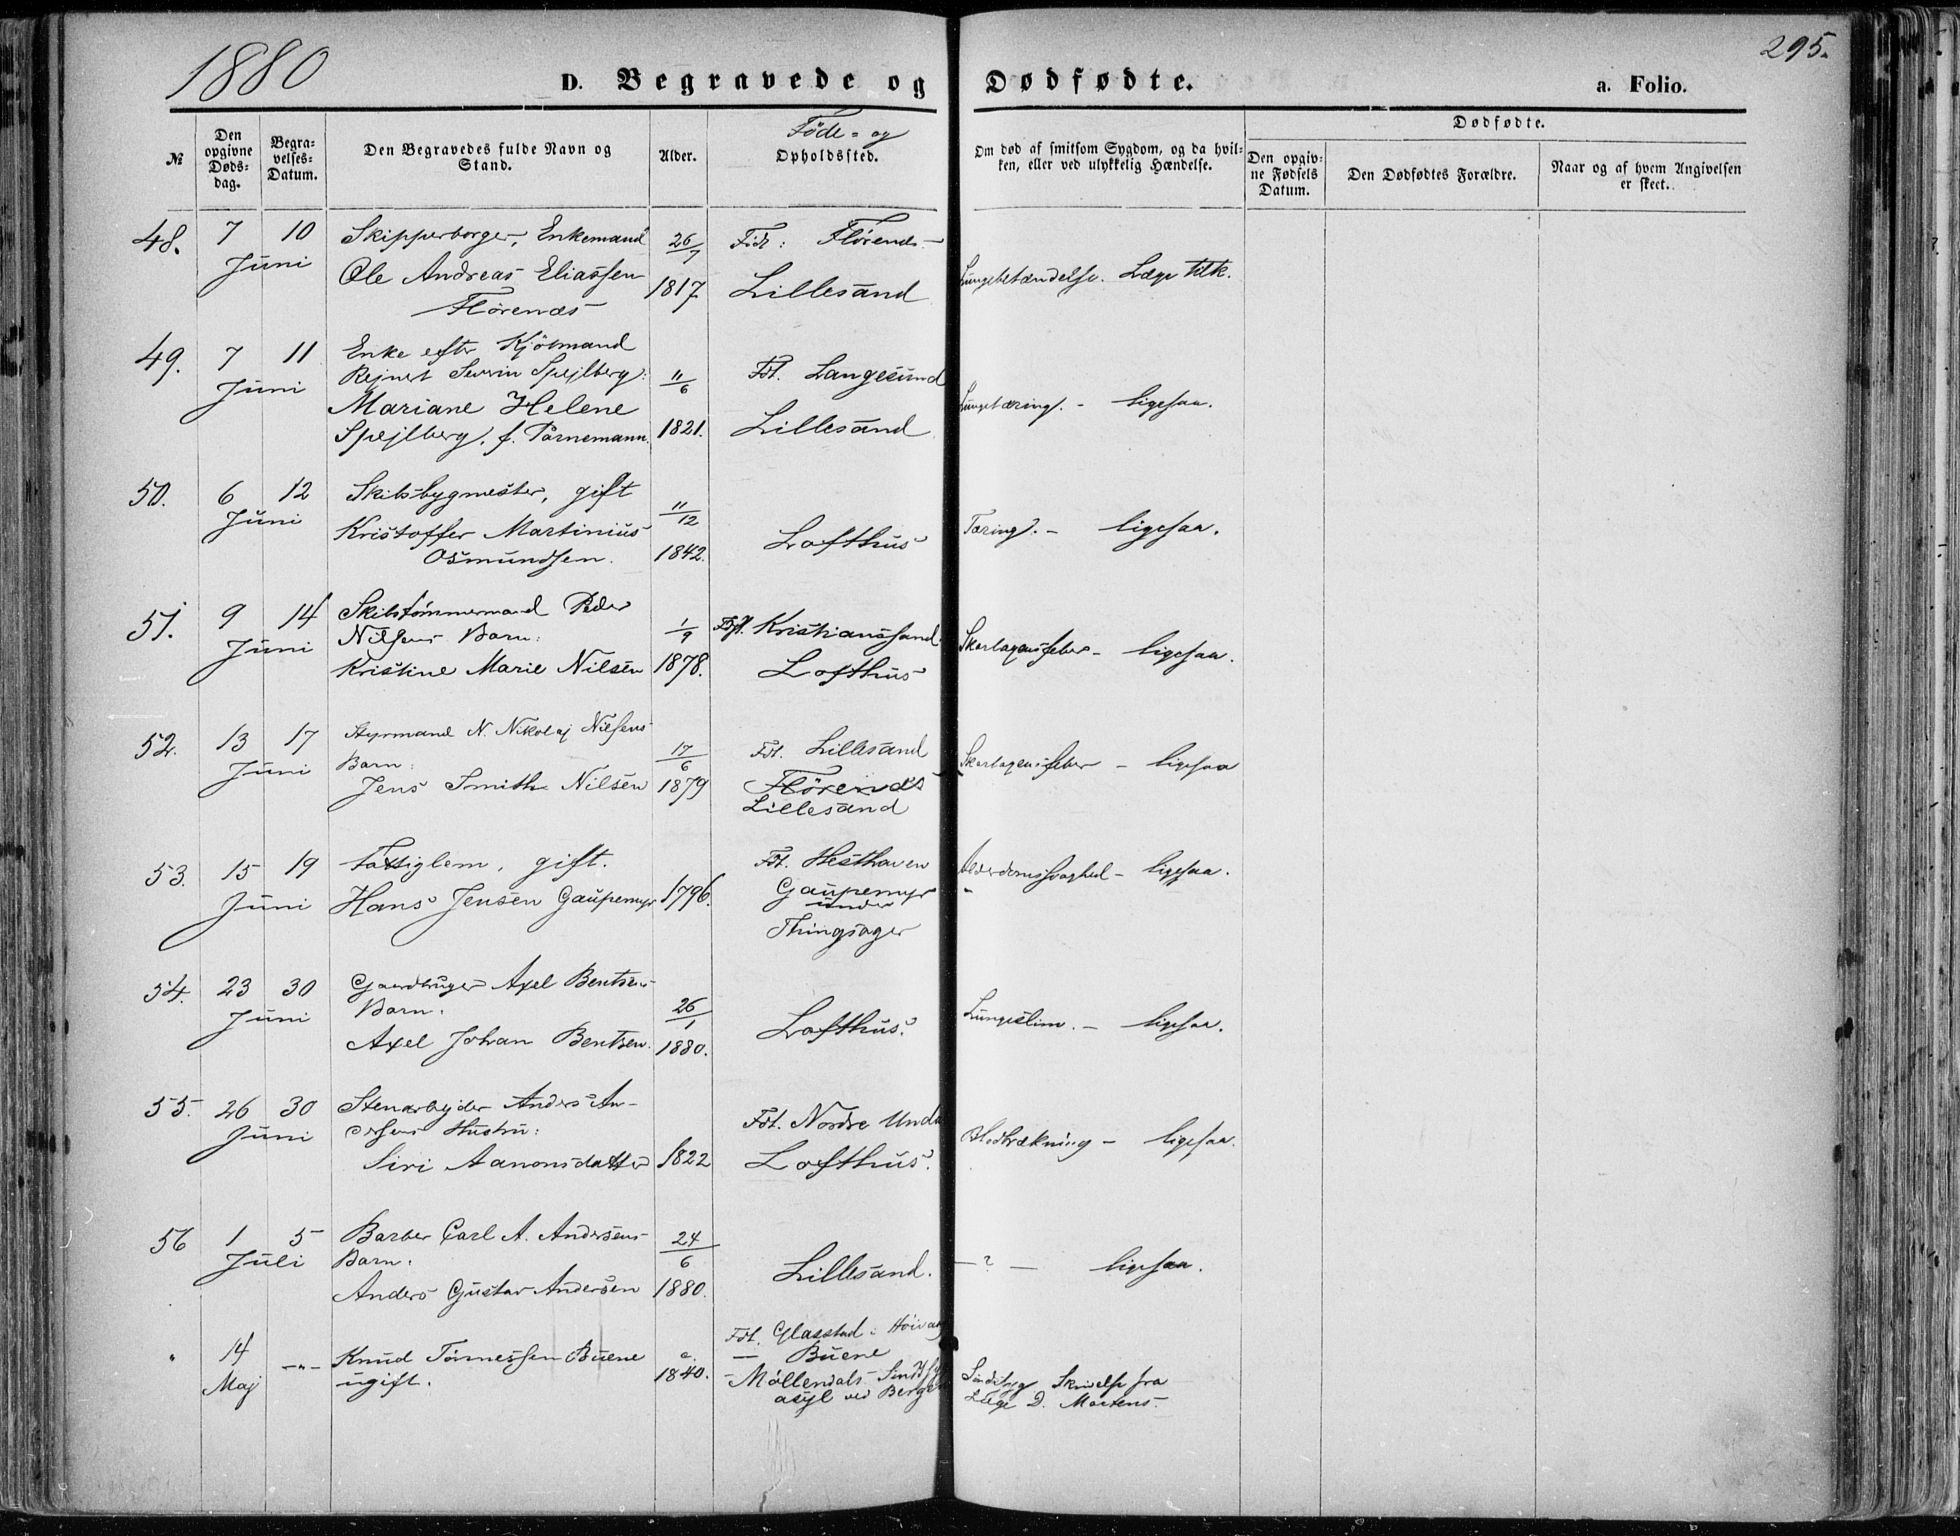 1880
295.
D. Begravede og Dødfødte.
a. Folio.
№
Den opgivne Døds-dag.
Begra-velses-Datum.
Den Begravedes fulde Navn og Stand.
Alder.
Føde- og Opholdssted.
Om død af smitsom Sygdom, og da hvil-ken, eller ved ulykkelig Hændelse.
Dødfødte.
Den opgiv-ne Fødsels Datum.
Den Dødfødtes Forældre.
Naar og af hvem Angivelsen er skeet.
48. 7 10 Skipperborger, Enkemand 26/7 Flørenæs
Juni Ole Andreas Eliassen 1817. Lillesand Lungebetændelse. Læge tilk.
Flørenæs
49. 7 11 Enke efter Kjøbmand
Juni Rejnert Severin Spejlberg: 11/6 Fdt. Langesund
Mariane Helene Lungetæring. - ligesaa.
Spejlberg, f. Tørnemann. 1821. Lillesand
50. 6 12 Skibsbygmester, gift 11/12
Juni Kristoffer Martinius Lofthus Tæring. - ligesaa.
Osmundsen. 1842.
51. 9 14 Skibstømmermand Peder
Juni Nilsens Barn: 1/9 Fdt. Kristianssand. Skarlagensfeber - ligesaa.
Kristine Marie Nilsen 1878. Lofthus
52. 13 17 Styrmand N. Nikolaj Nilsens
Juni Barn: 17/6 Fdt. Lillesand Skarlagensfeber - ligesaa
Jens Smith Nilsen 1879 Flørenæs
Lillesand
53. 15 19 Fattiglem, gift. Fdt. Hesthaven
Juni Hans Jensen Gaupemyr 1796. Gaupemyr Alderdomssvaghed - ligesaa.
under
Thingsager
54. 23 30 Gaardbruger Axel Bentsens
Juni Barn: 26/1 Lofthus. Lungeslim. - ligesaa.
Axel Johan Bentsen. 1880.
55. 26 30 Stenarbejder Anders An-
Juni dersens Hustru: Fdt. Nordre Blodbrækning - ligesaa.
Siri Aanonsdatter 1822 Lofthus.
56 1 5 Barber Carl A. Andersens 24/6
Juli Barn: Lillesand. - ? - ligesaa.
Anders Gustav Andersen 1880.
" 14 -"- Knud Tønnessen Buene c. Fdt. Glasstad i Høivaag
Maj ugift. 1840. - Buene
- Møllendals Sindssyge- Sindssyg Skrivelse fra
asyl ved Bergen Læge D. Martens.